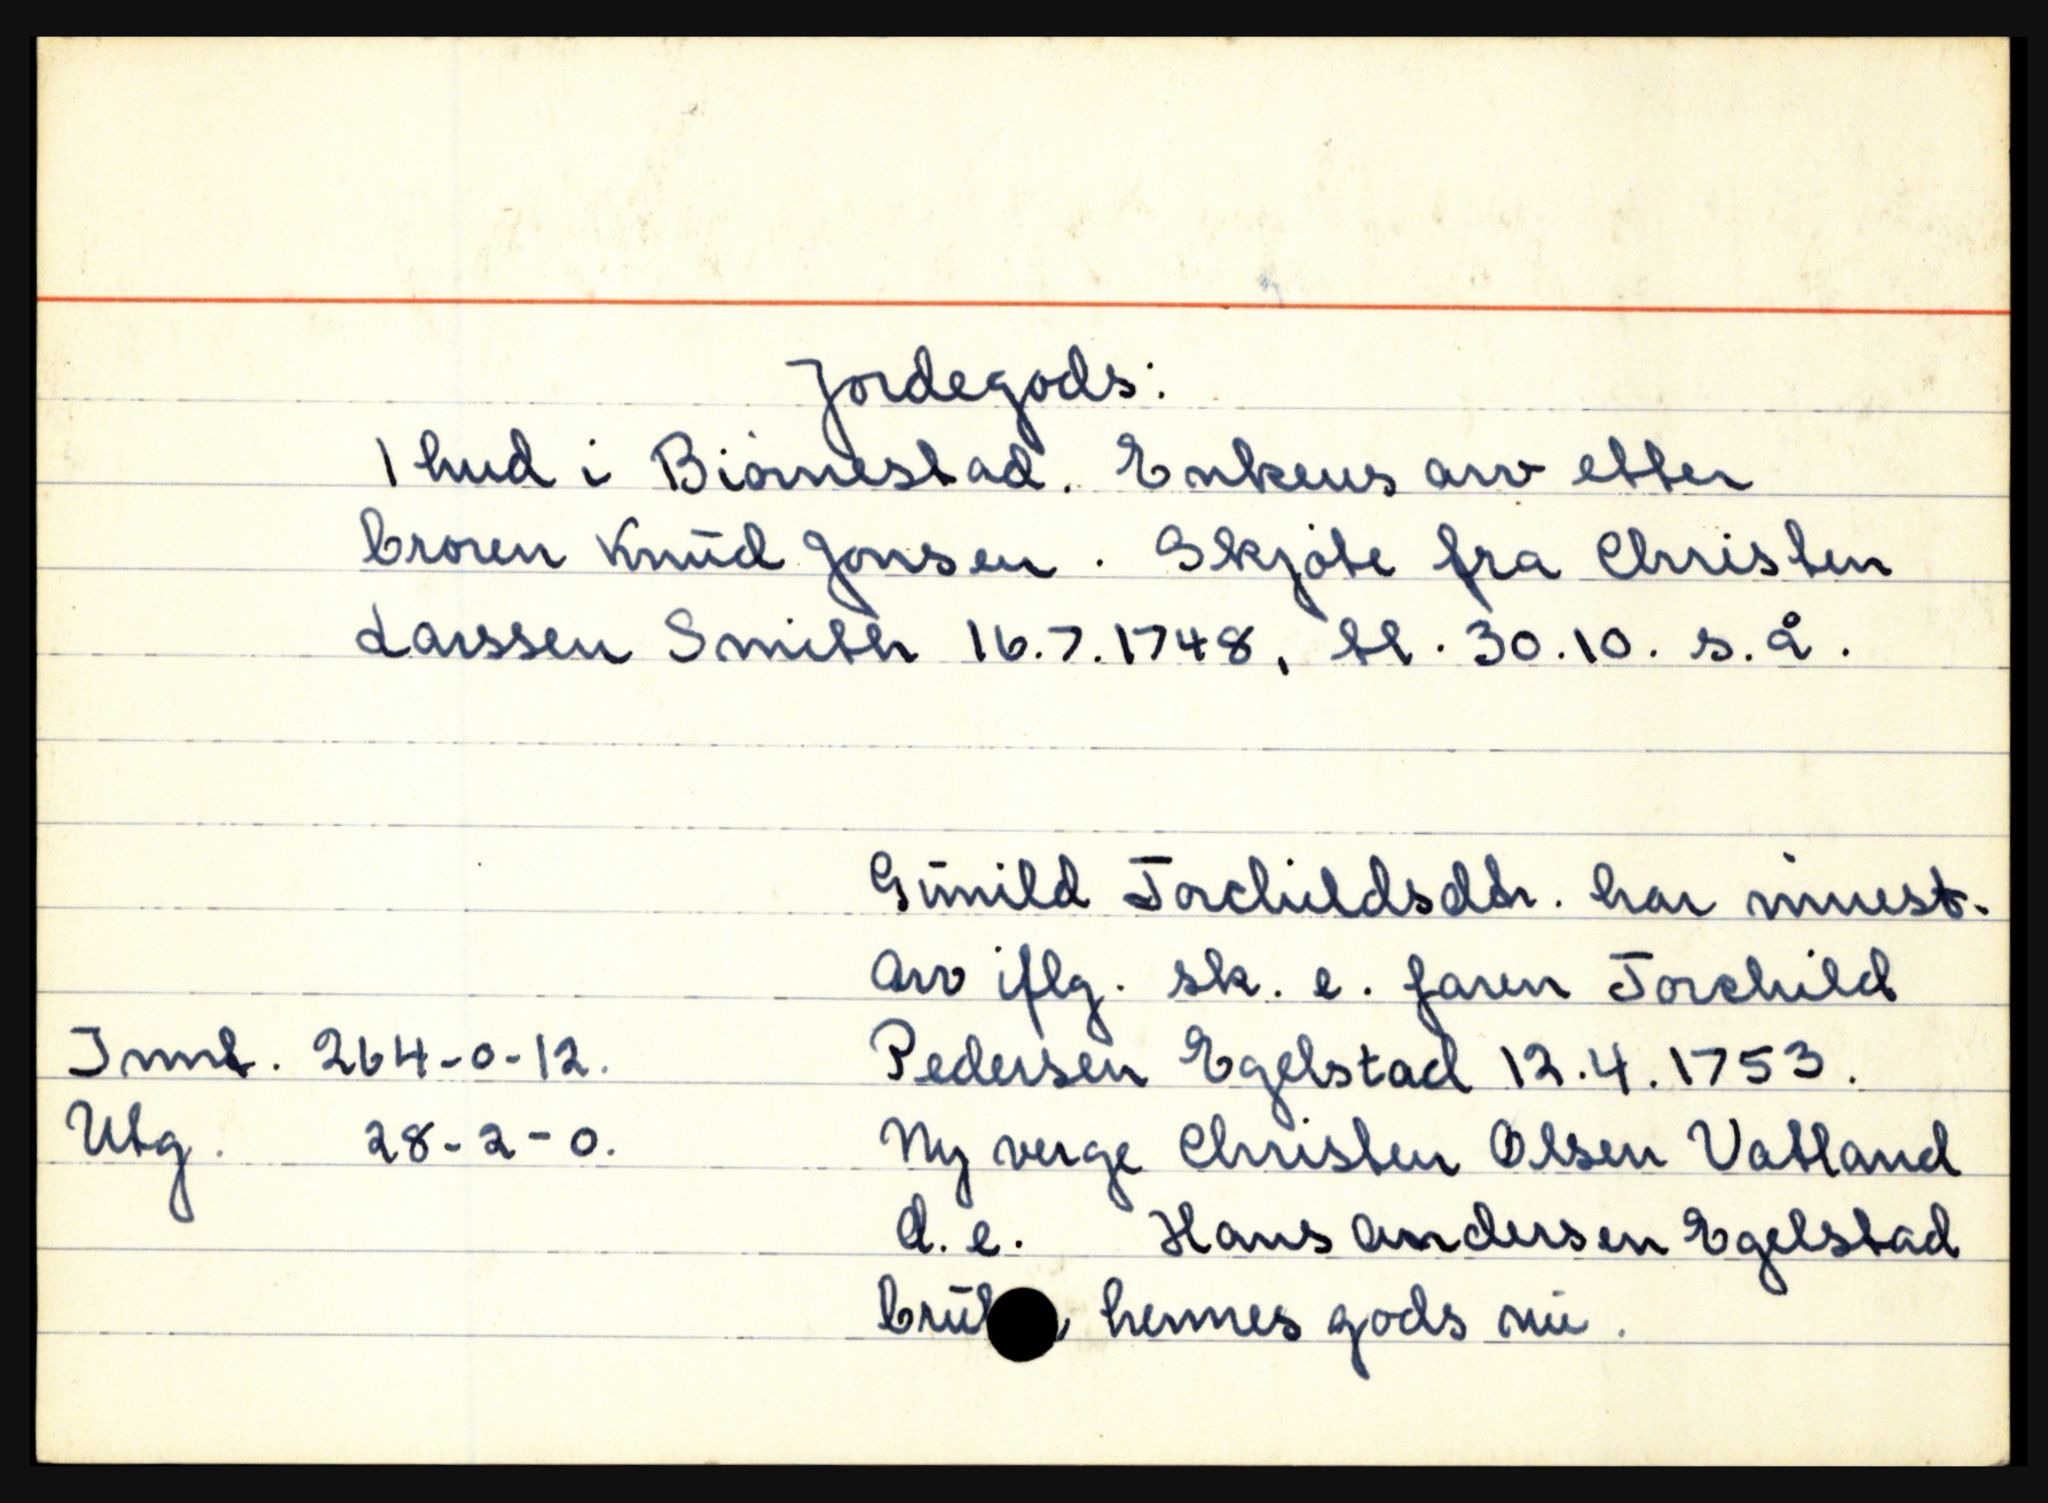 Jordegods:
1 hud i Biørnestad. Enkens arv etter
broren Knud Jonsen. Skjøte fra Christen
Larssen Smith 16.7.1748, tl. 30.10. s.å.
Gunild Torchildsdtr. har innest.
arv iflg. sk. e. faren Torchild
Innt. 264-0-12. Pedersen Egelstad 12.4.1753.
Utg. 28-2-0. Ny verge Christen Olsen Vatland
d.e. Hans Andersen Egelstad
hennes gods nu.